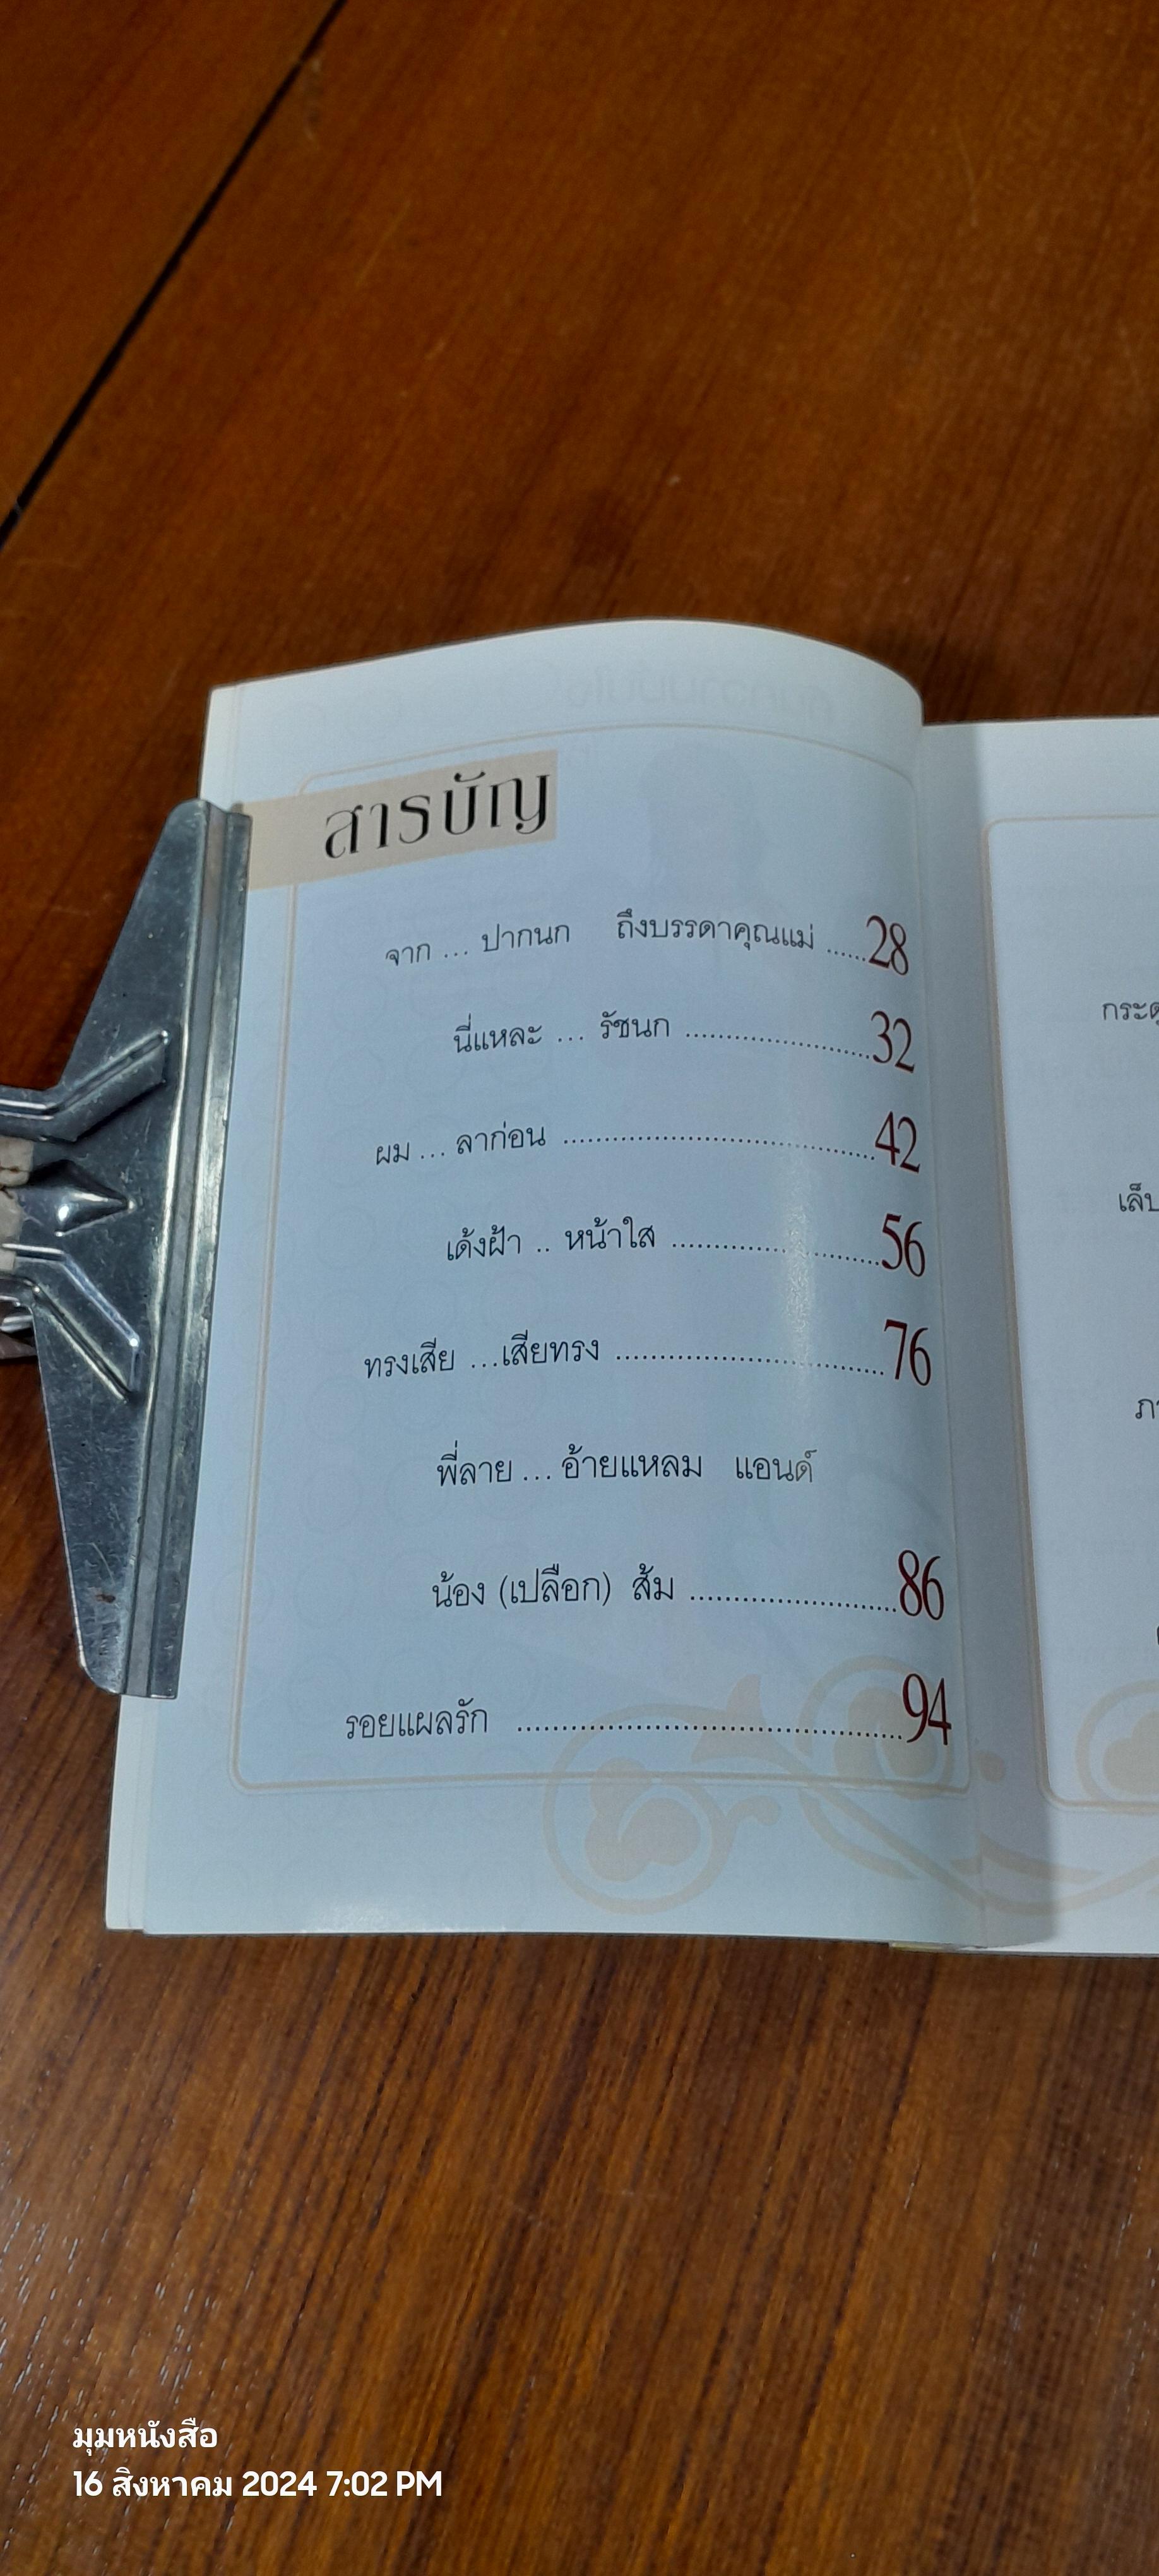 สารบัญ
จาก ... ปากนก ถึงบรรดาคุณแม่ ......28
นี่แหละ ... รัชนก ........................32
ผม ... ลาก่อน ........................................42
เด้งฝ้า .. หน้าใส ...........................56
ทรงเสีย ...เสียทรง ...................................76
พี่ลาย ... อ้ายแหลม แอนด์
น้อง (เปลือก) ส้ม ...........................86
รอยแผลรัก ..................................................94
มุมหนังสือ
16 สิงหาคม 2024 7:02 PM